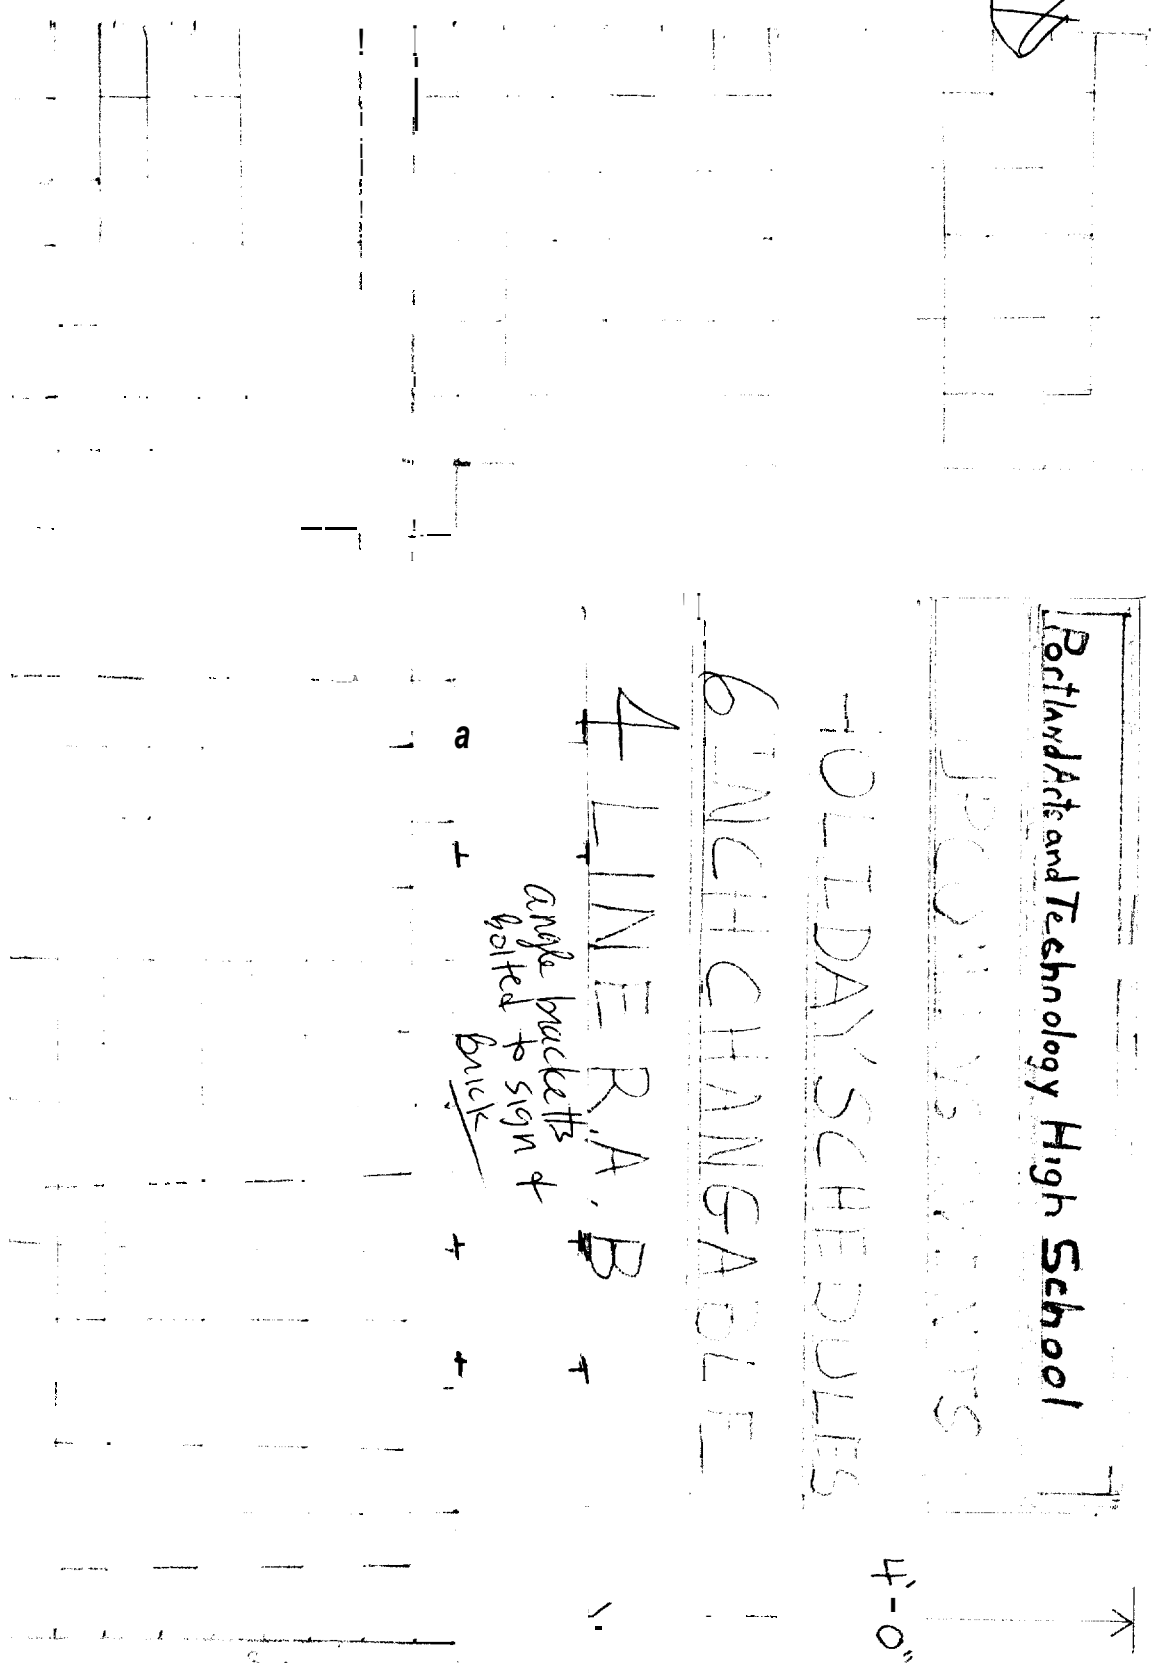 Portland Arts and Technology High School
HOLIDAY SCHEDULES
6 INCH CHANGABLE
4 LINE R.A.B
angle bracketts
bolted to sign &
brick
4'-0"
a